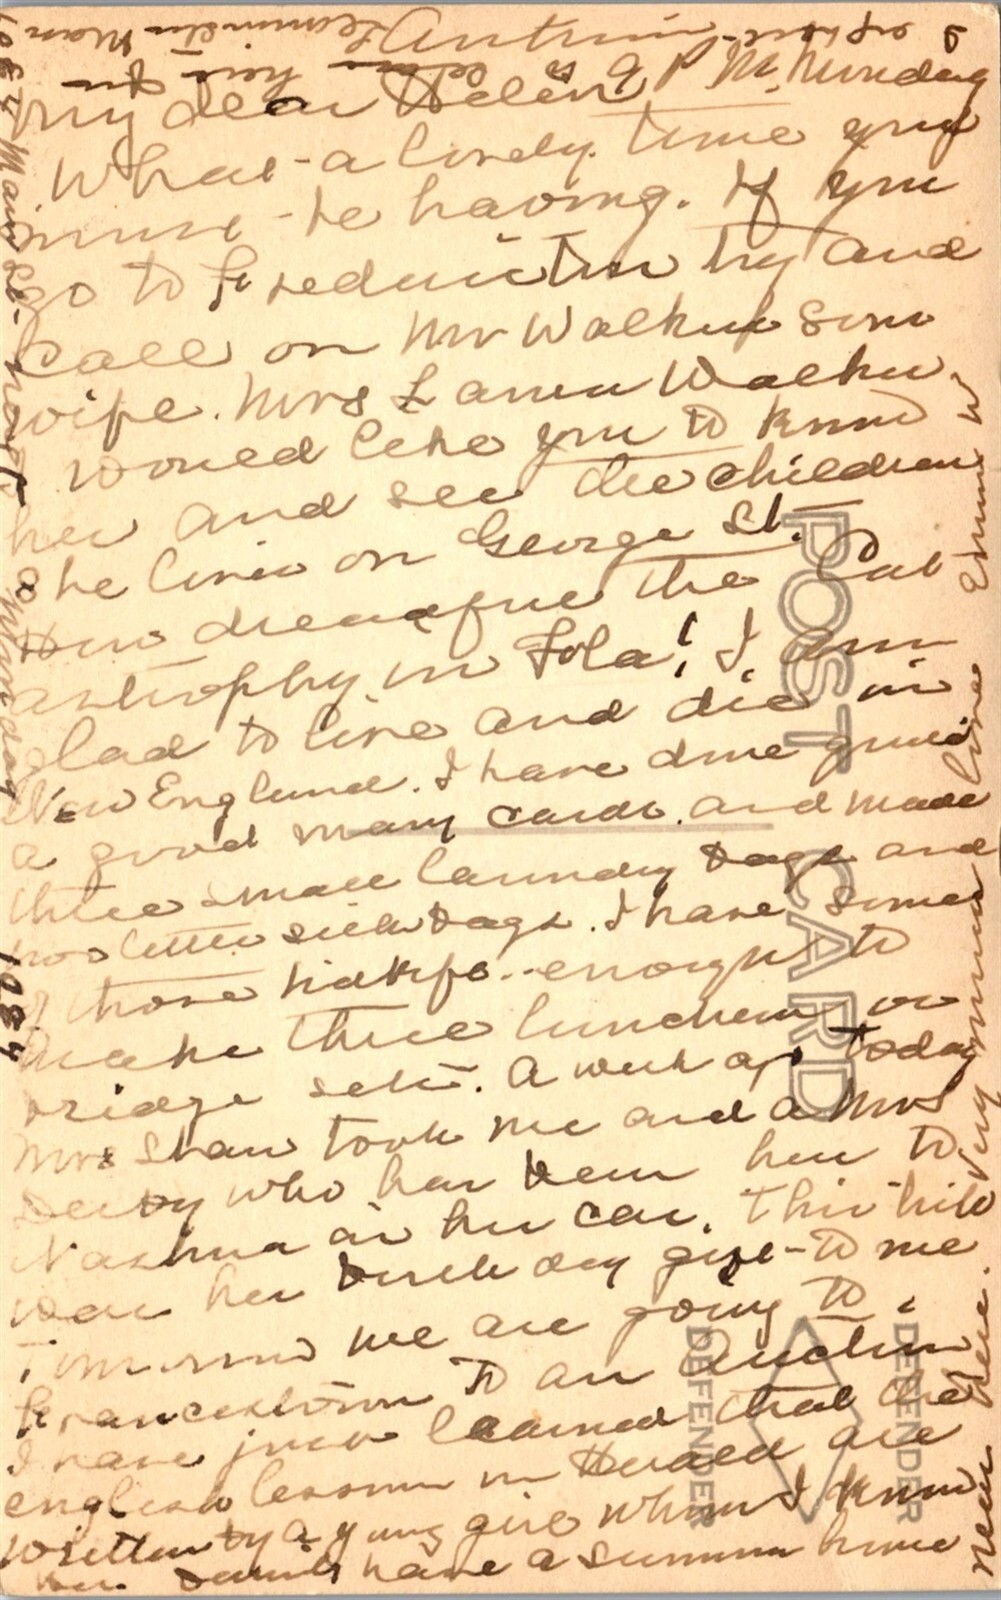 Antrim
My dear Helen 6 P.M. Sunday
What a lovely time you
must be having. If you
go to Fredericton try and
call on Mr Walker's son
wife. Mrs Walker
would like you to know
her and see the children
She lives on George St.
How dreadful the Cat
astrophy in Lola! I am
glad to live and die in
New England. I have done quite
a good many cards and made
three small laundry bags and
two little silk bags. I have some
of those hdkfs - enough to
make three luncheon or
bridge sets. A week ago today
Mrs Shaw took me and a Mrs
who has been here to
Nashua in her car. This trip
was her birthday gift to me
Tomorrow we are going to
Francestown to an auction
I have just learned that the
english lessons in Herald are
written by a young girl whom I know
her family have a summer home
near here. Very much love
Emma W
POST CARD
DEFENDER
DEFENDER